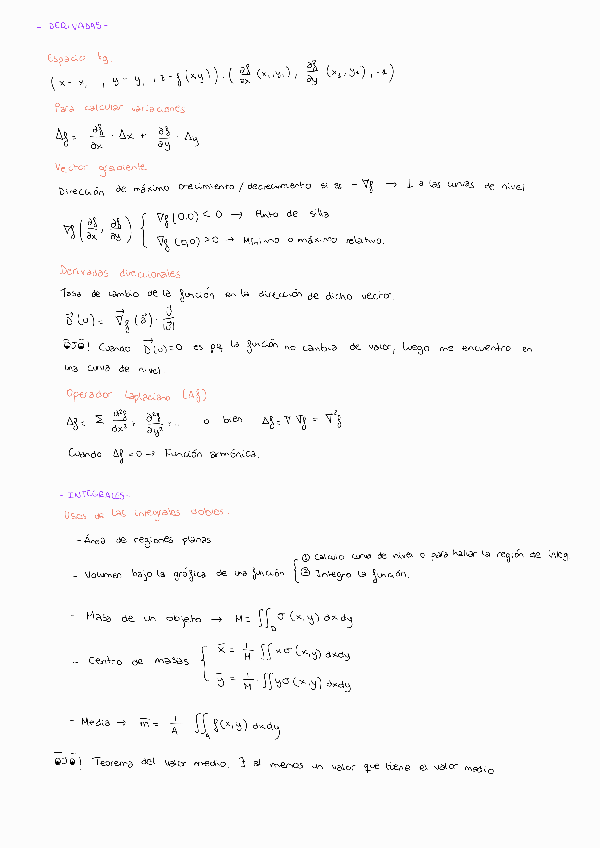 - DERIVADAS -
Espacio tg.
(x - x₁ , y - y₁ , z - f(xy)) · (∂f/∂x (x₁,y₁), ∂f/∂y (x₁,y₁), -1)
Para calcular variaciones
Δf = ∂f/∂x · Δx + ∂f/∂y · Δy
Vector gradiente
Dirección de máximo crecimiento / decrecimento si es - ∇f → ⊥ a las curvas de nivel
∇f (∂f/∂x, ∂f/∂y) { ∇f (0,0) < 0 → Punto de silla
∇f (0,0) > 0 → Mínimo o máximo relativo.
Derivadas direccionales
Tasa de cambio de la función en la dirección de dicho vector.
D⃗(u) = ∇⃗f (a⃗) · u⃗/|u⃗|
OJO! Cuando D⃗(u)=0 es pq la función no cambia de valor, luego me encuentro en
una curva de nivel
Operador Laplaciano (Δf)
Δf = Σ ∂²f/∂x², ∂²f/∂y², ... o bien Δf = ∇ ∇f = ∇²f
Cuando Δf = 0 → Función armónica.
- INTEGRALES -
Usos de las integrales dobles.
- Área de regiones planas
- Volumen bajo la gráfica de una función { ① Calculo curva de nivel 0 para hallar la región de integ
② Integro la función.
- Masa de un objeto → M = ∬_D σ(x,y) dxdy
- Centro de masas { x̄ = 1/M · ∬ xσ(x,y) dxdy
ȳ = 1/M · ∬ yσ(x,y) dxdy
- Media → m̄ = 1/A ∬_A f(x,y) dxdy
OJO! Teorema del valor medio. ∃ al menos un valor que tiene el valor medio